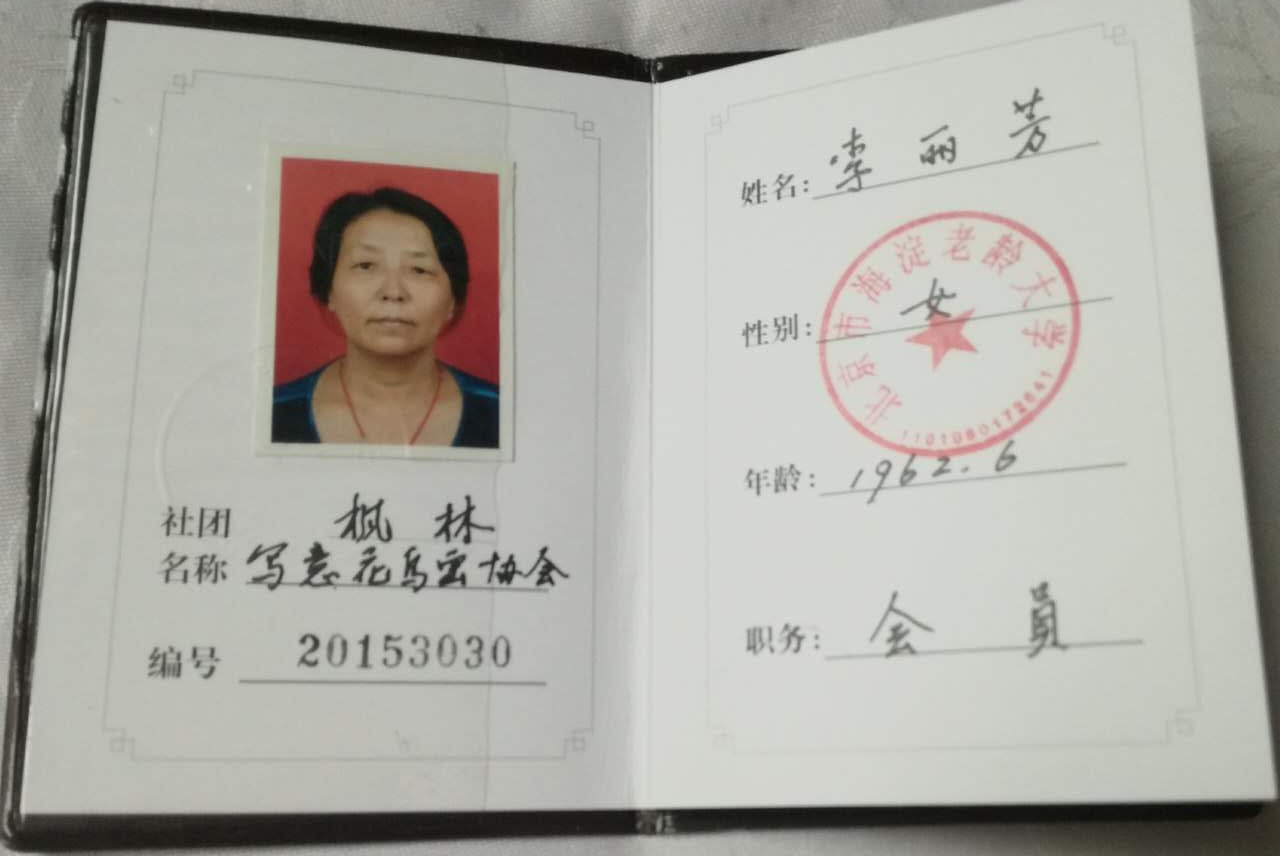 社团 枫林
名称 写意花鸟画协会
编号 20153030
姓名: 李丽芳
北京市海淀老龄大学
性别: 女
1101080172641
年龄: 1962.6
职务: 会员